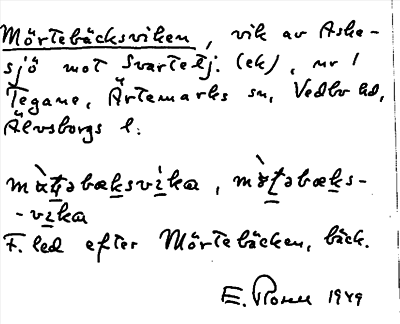 Mörtebäcksviken, vik av Aske-
sjö mot Svartetj. (ek), nr 1
Tegane, Ärtemarks sn, Vedbo hd,
Älvsborgs l.
mɑ̀ṯəbæḵsvi̱ka, mø̀ṯəbæḵs-
-vi̱ka
F. led efter Mörtebäcken, bäck.
E. Rosell 1949